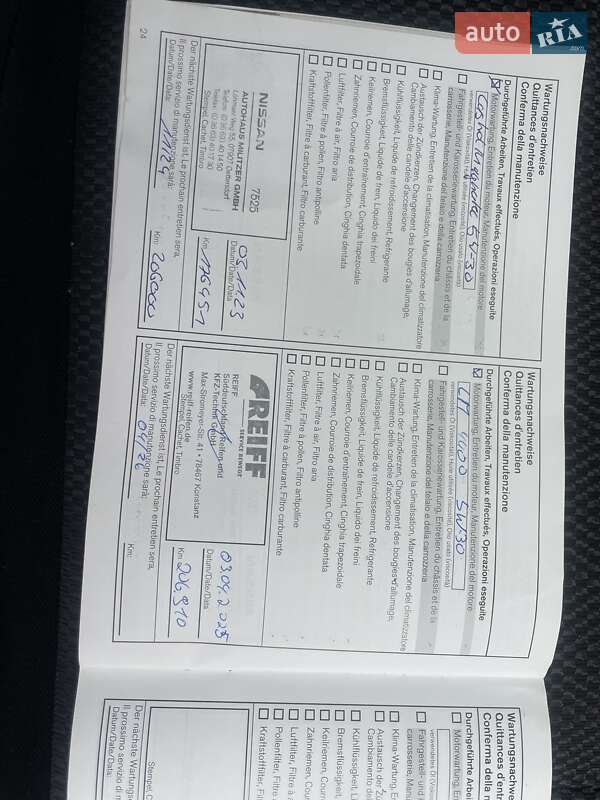 auto RIA .com
Wartungsnachweise
Quittances d'entretien
Conferma della manutenzione
Durchgeführte Arbeiten, Travaux effectués, Operazioni eseguite
Motorwartung, Entretien du moteur, Manutenzione del motore
5W-30
verwendetes Öl (Viskosität), huile utilisée (viscosité), Olio usato (viscosità)
Fahrgestell- und Karosseriewartung, Entretien du châssis et de la
carrosserie, Manutenzione del telaio e della carrozzeria
Klima-Wartung, Entretien de la climatisation, Manutenzione del climatizzatore
Austausch der Zündkerzen, Changement des bougies d'allumage,
Cambiamento delle candele d'accensione
Kühlflüssigkeit, Liquide de refroidissement, Refrigerante
Bremsflüssigkeit, Liquide de frein, Liquido dei freni
Keilriemen, Courroie d'entraînement, Cinghia trapezoidale
Zahnriemen, Courroie de distribution, Cinghia dentata
Luftfilter, Filtre à air, Filtro aria
Pollenfilter, Filtre à pollen, Filtro antipolline
Kraftstofffilter, Filtre à carburant, Filtro carburante
NISSAN 7525
AUTOHAUS MELITZER GMBH
Stempel, Cachet, Timbro
03.11.23
Datum/Date/Data
176451
Km:
Der nächste Wartungsdienst ist: Le prochain entretien sera,
Il prossimo servizio di manutenzione sarà:
11/24
Datum/Date/Data:
Km: 206000
24
Wartungsnachweise
Quittances d'entretien
Conferma della manutenzione
Durchgeführte Arbeiten, Travaux effectués, Operazioni eseguite
Motorwartung, Entretien du moteur, Manutenzione del motore
5W30
verwendetes Öl (Viskosität), huile utilisée (viscosité), Olio usato (viscosità)
Fahrgestell- und Karosseriewartung, Entretien du châssis et de la
carrosserie, Manutenzione del telaio e della carrozzeria
Klima-Wartung, Entretien de la climatisation, Manutenzione del climatizzatore
Austausch der Zündkerzen, Changement des bougies d'allumage,
Cambiamento delle candele d'accensione
Kühlflüssigkeit, Liquide de refroidissement, Refrigerante
Bremsflüssigkeit, Liquide de frein, Liquido dei freni
Keilriemen, Courroie d'entraînement, Cinghia trapezoidale
Zahnriemen, Courroie de distribution, Cinghia dentata
Luftfilter, Filtre à air, Filtro aria
Pollenfilter, Filtre à pollen, Filtro antipolline
Kraftstofffilter, Filtre à carburant, Filtro carburante
REIFF
REIFF
Süddeutschland Reifen und
KFZ-Technik GmbH
Max-Stromeyer-Str. 41 • 78467 Konstanz
www.reiff-reifen.de
Stempel, Cachet, Timbro
03.04.2025
Datum/Date/Data
Km: 206.910
Der nächste Wartungsdienst ist: Le prochain entretien sera,
Il prossimo servizio di manutenzione sarà:
Datum/Date/Data: 04/26
Km:
Wartungsnachwe
Quittances d'en
Conferma della m
Durchgeführte Arbei
Motorwartung, Ent
verwendetes Öl (Viskosi
Fahrgestell- und
carrosserie, Manu
Klima-Wartung, En
Austausch der Zü
Cambiamento del
Kühlflüssigkeit, Li
Bremsflüssigkeit,
Keilriemen, Courr
Zahnriemen, Cour
Luftfilter, Filtre à a
Pollenfilter, Filtre à
Kraftstofffilter, Filt
Stempel, C
Der nächste Wartungs
Il prossimo servizio di m
Datum/Date/Data: